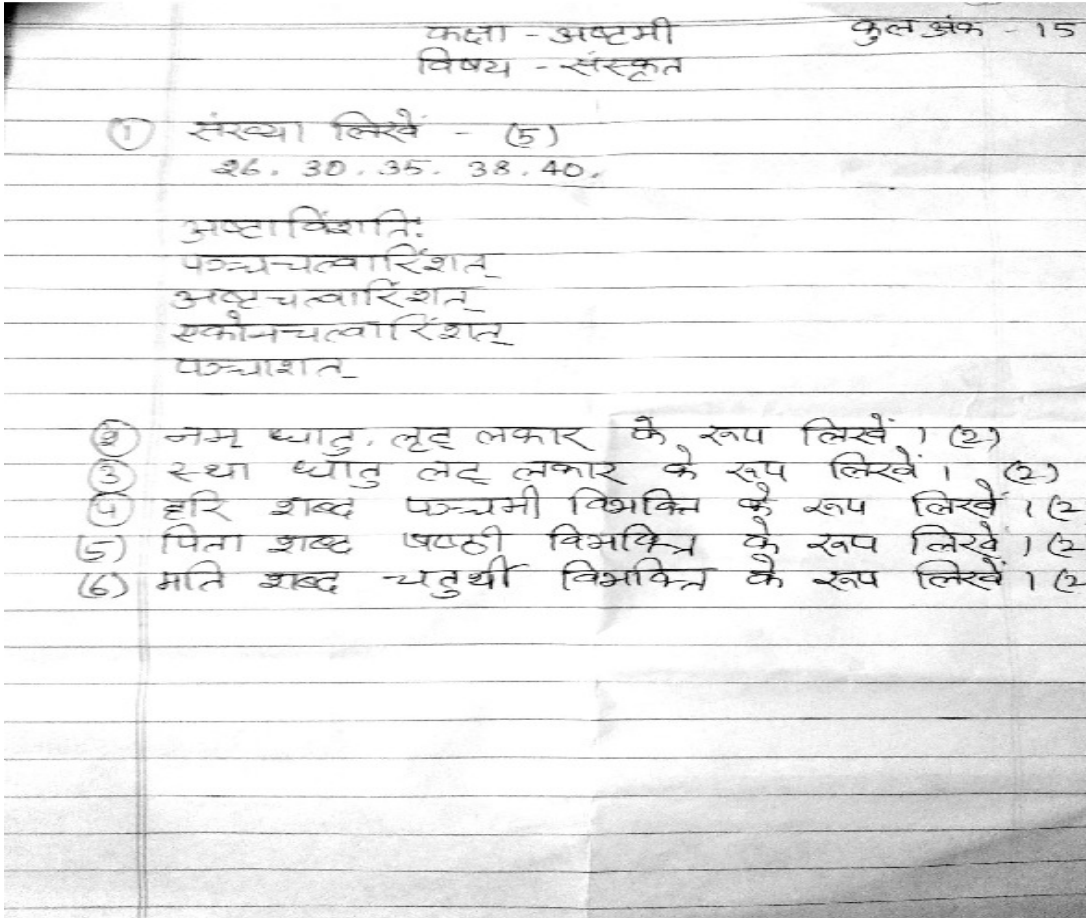 कक्षा - अष्टमी कुल अंक - 15
विषय - संस्कृत
① संख्या लिखें - (5)
26. 30. 35. 38. 40.
अष्टाविंशति:
पञ्चचत्वारिंशत्
अष्टचत्वारिंशत्
एकोनचत्वारिंशत्
पञ्चाशत्
② नम् धातु, लृट् लकार के रूप लिखें। (2)
③ स्था धातु लट् लकार के रूप लिखें। (2)
④ हरि शब्द पञ्चमी विभक्ति के रूप लिखें। (2
(5) पिता शब्द षष्ठी विभक्ति के रूप लिखें। (2
(6) मति शब्द चतुर्थी विभक्ति के रूप लिखें। (2